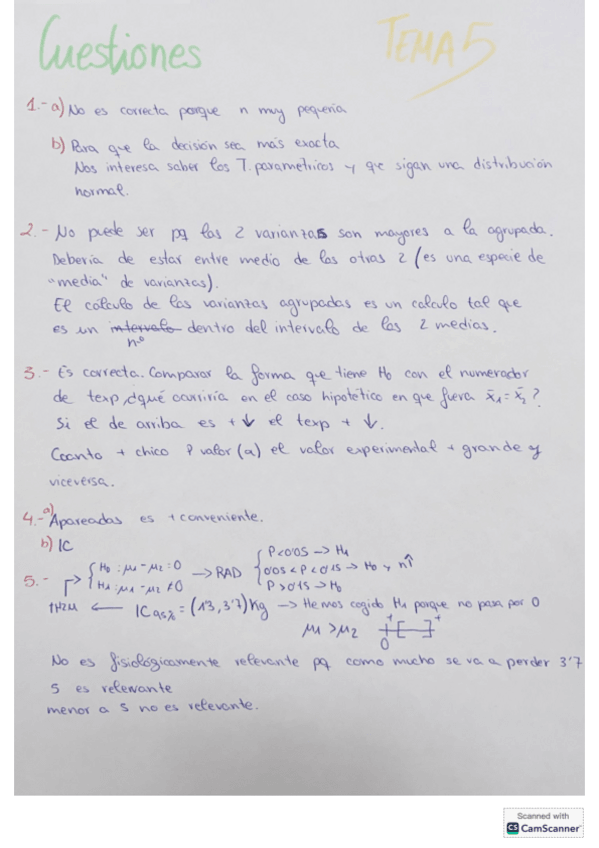 Cuestiones TEMA 5
1.- a) No es correcta porque n muy pequeña
b) Para que la decisión sea más exacta
Nos interesa saber los T. parametricos y que sigan una distribución
normal.
2.- No puede ser pq las 2 varianzas son mayores a la agrupada.
Deberia de estar entre medio de los otras 2 (es una especie de
"media" de varianzas).
El calculo de las varianzas agrupadas es un calculo tal que
es un intervalo nº dentro del intervalo de las 2 medias.
3.- Es correcta. Comparar la forma que tiene H0 con el numerador
de texp, ¿qué ocurriría en el caso hipotético en que fuera x̄1 = x̄2?
Si el de arriba es + ↓ el texp + ↓.
Cuanto + chico P valor (a) el valor experimental + grande y
viceversa.
4.- a) Apareadas es + conveniente.
b) IC
5.- { H0: μ1 - μ2 = 0
H1: μ1 - μ2 ≠ 0 → RAD { P<0'05 → H1
0'05 < P < 0'15 → H0 y n↑
P > 0'15 → H0
1H2M ← IC95% = (1'3, 3'7) Kg → Hemos cogido H1 porque no pasa por 0
μ1 > μ2 + [ ] +
0
No es fisiológicamente relevante pq como mucho se va a perder 3'7
5 es relevante
menor a 5 no es relevante.
Scanned with
CS CamScanner